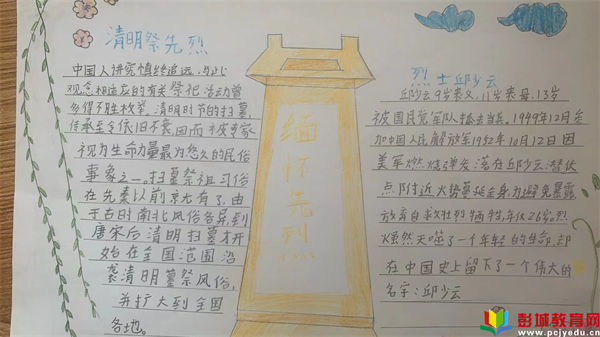 清明祭先烈
中国人讲究慎终追远，与此
观念相适应的有关祭祀活动曾
多得不胜枚举，清明时节的扫墓，
传承至今依旧不衰，因而被专家
视为生命力量最为悠久的民俗
事象之一。扫墓祭祖习俗
在先秦以前就有了，由
于古时南北风俗各异，到
唐宋后清明扫墓才开
始在全国范围沿
袭清明墓祭风俗，
并扩大到全国
各地。
缅怀先列
烈士邱少云
邱少云9岁丧父，11岁丧母，13岁
被国民党军队抓去当兵，1949年12月参
加中国人民解放军1952年10月12日因
美军燃烧弹发落在邱少云潜伏
点附近火势蔓延全身为避免暴露
放弃自救壮烈牺牲，年仅26岁，烈
火吞噬了一个年轻的生命，却
在中国史上留下了一个伟大的
名字：邱少云
彭城教育网
www.pcjyedu.cn